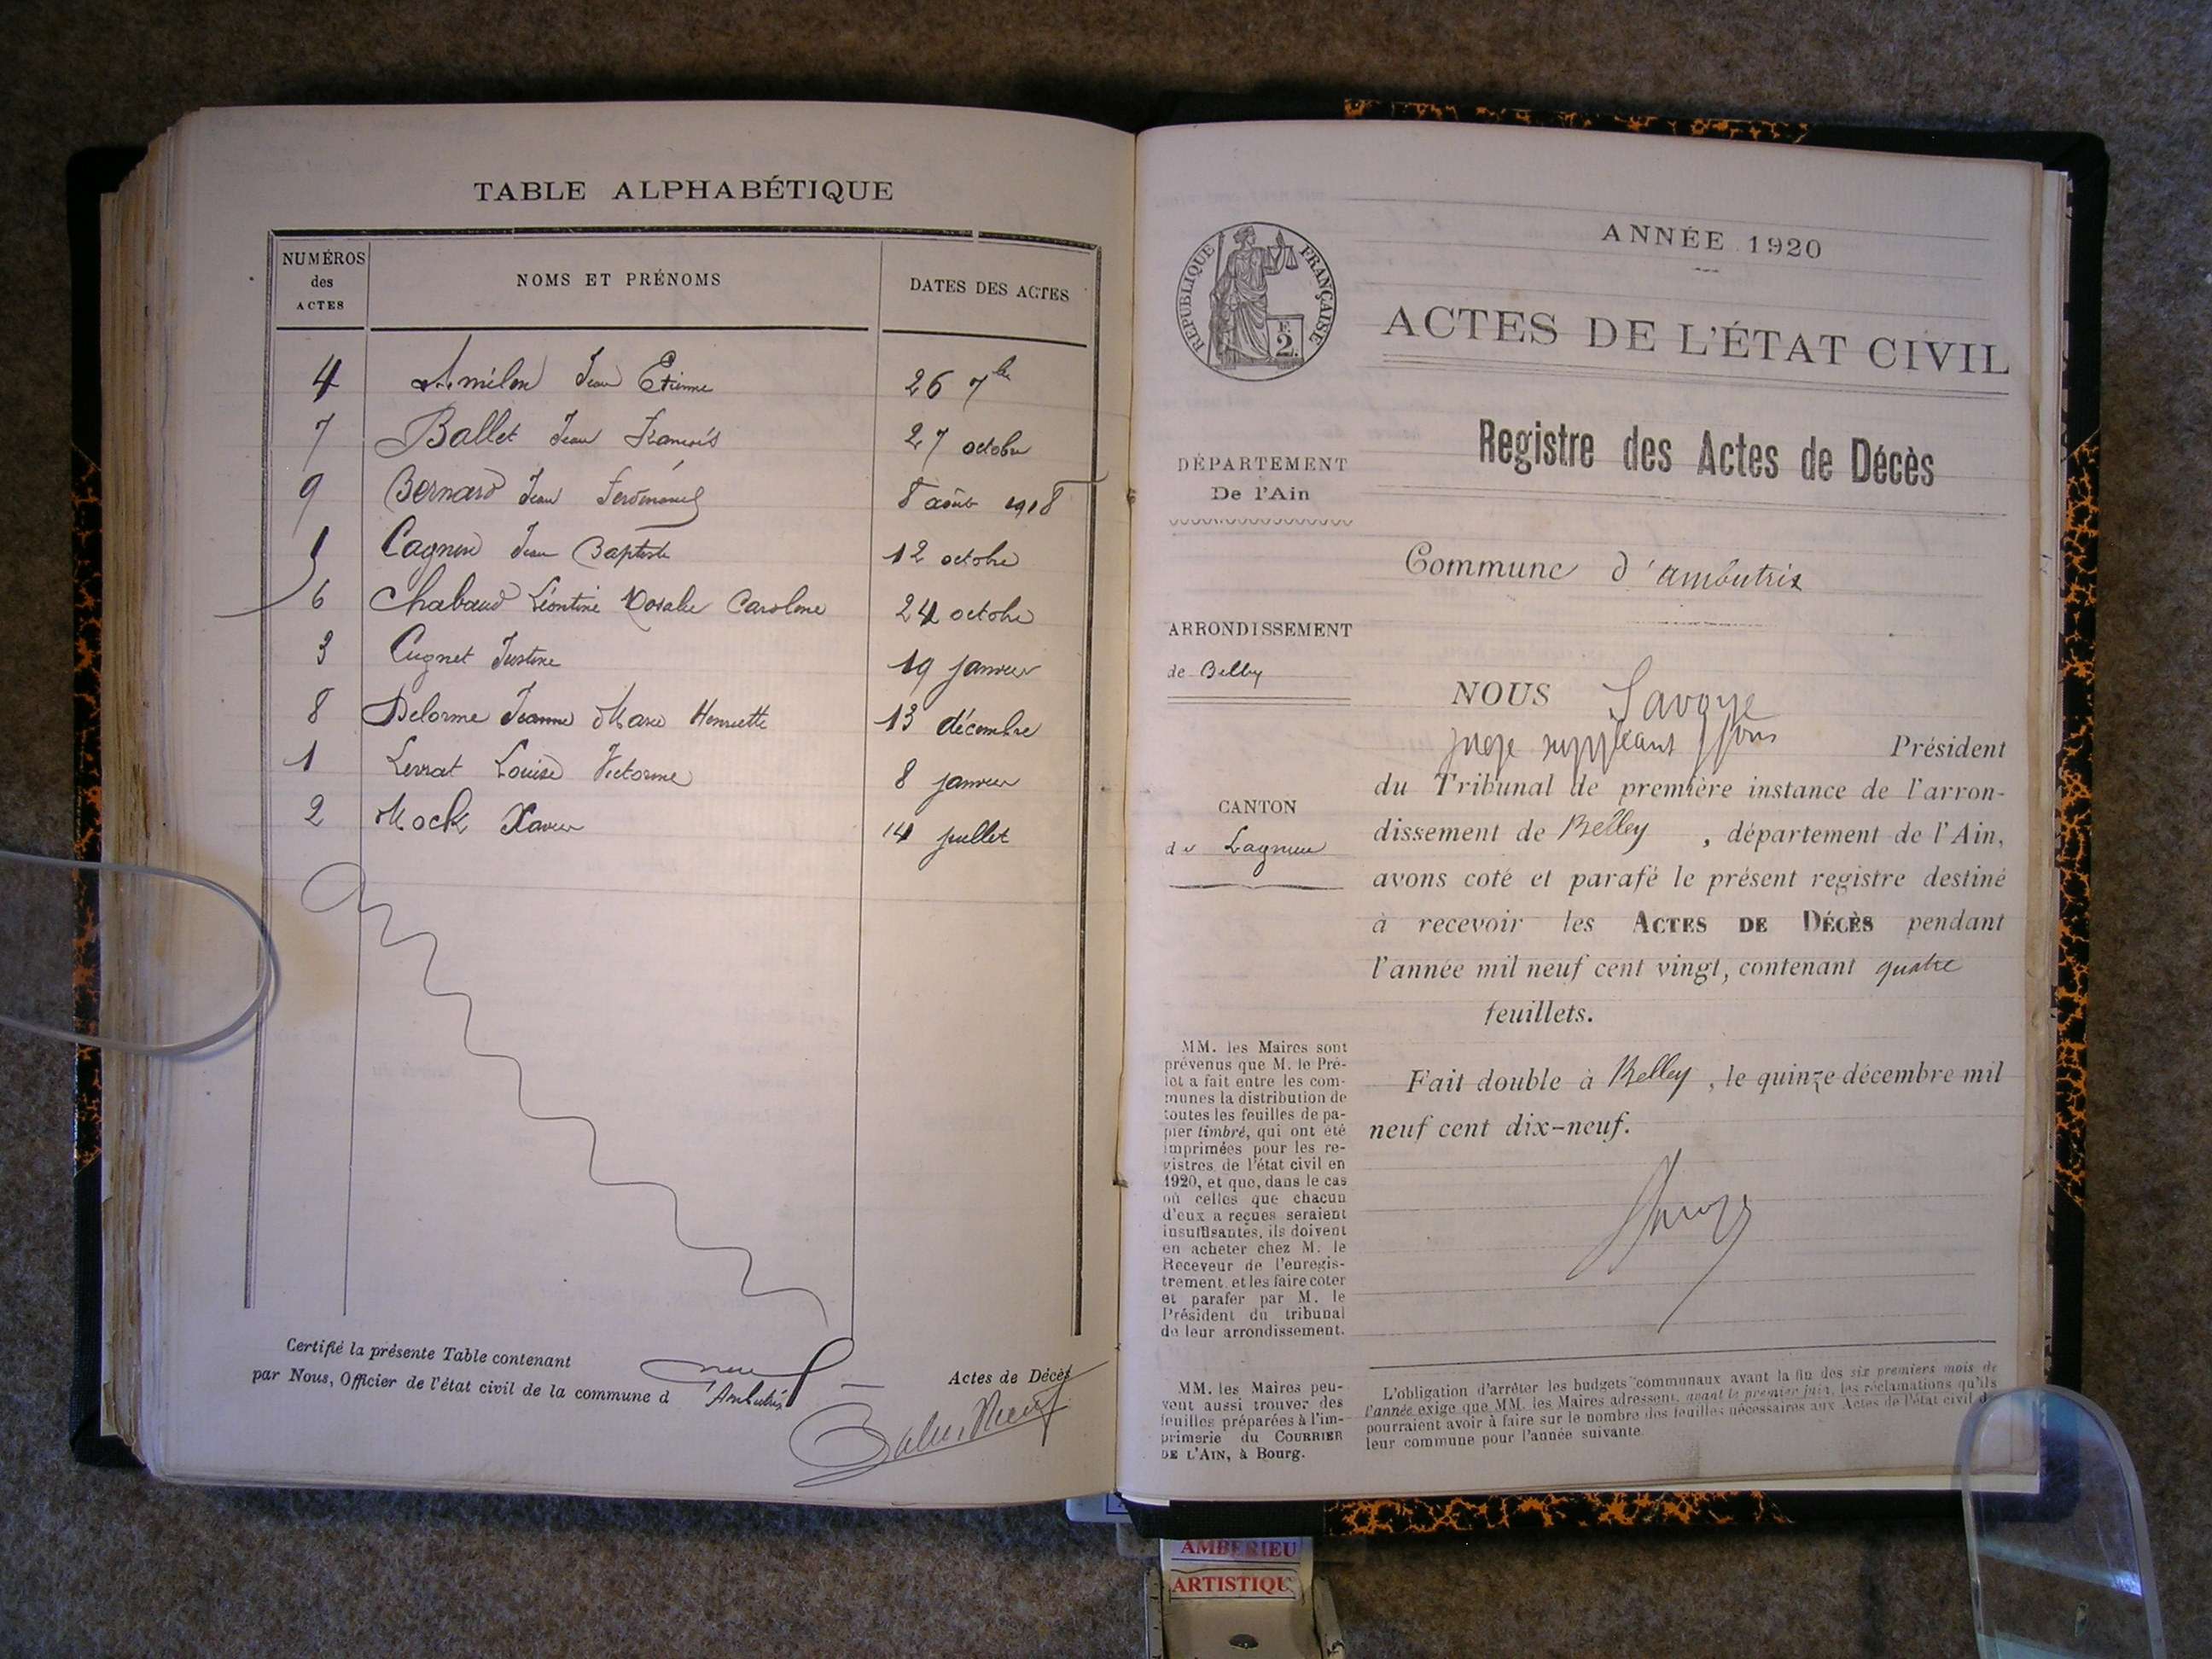 TABLE ALPHABÉTIQUE
NUMÉROS
des
ACTES
NOMS ET PRÉNOMS
DATES DES ACTES
4 Amilon Jean Etienne 26 7bre
7 Ballet Jean François 27 octobre
9 Bernard Jean Ferdinand 8 août 1918
5 Cagnin Jean Baptiste 12 octobre
6 Chabaud Léontine Rosalie Caroline 24 octobre
3 Cugnet Justine 19 janvier
8 Delorme Jeanne Marie Henriette 13 décembre
1 Levrat Louise Victorine 8 janvier
2 Mock Xavier 14 juillet
Certifié la présente Table contenant neuf Actes de Décès
par Nous, Officier de l'état civil de la commune d'Ambutrix
RÉPUBLIQUE FRANÇAISE
F.
2.
ANNÉE 1920
ACTES DE L'ÉTAT CIVIL
Registre des Actes de Décès
DÉPARTEMENT
De l'Ain
Commune d'ambutrix
ARRONDISSEMENT
de Belley
CANTON
de Lagnieu
NOUS Savoye
juge suppléant pour Président
du Tribunal de première instance de l'arron-
dissement de Belley, département de l'Ain,
avons coté et parafé le présent registre destiné
à recevoir les ACTES DE DÉCÈS pendant
l'année mil neuf cent vingt, contenant quatre
feuillets.
Fait double à Belley, le quinze décembre mil
neuf cent dix-neuf.
MM. les Maires sont
prévenus que M. le Pré-
fet a fait entre les com-
munes la distribution de
toutes les feuilles de pa-
pier timbré, qui ont été
imprimées pour les re-
gistres de l'état civil en
1920, et que, dans le cas
où celles que chacun
d'eux a reçues seraient
insuffisantes, ils doivent
en acheter chez M. le
Receveur de l'enregis-
trement et les faire coter
et parafer par M. le
Président du tribunal
de leur arrondissement.
MM. les Maires peu-
vent aussi trouver des
feuilles préparées à l'im-
primerie du COURRIER
DE L'AIN, à Bourg.
L'obligation d'arrêter les budgets communaux avant la fin des six premiers mois de
l'année exige que MM. les Maires adressent, avant le premier juin, les réclamations qu'ils
pourraient avoir à faire sur le nombre des feuilles nécessaires aux Actes de l'état civil de
leur commune pour l'année suivante.
AMBERIEU
ARTISTIQU